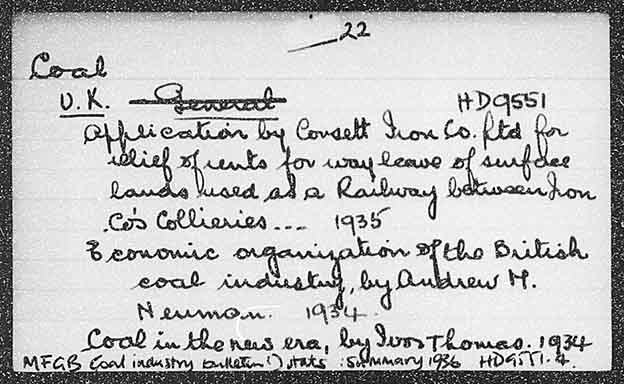 22
Coal
U.K. General HD9551
Application by Consett Iron Co. Ltd for
relief of rents for way leave of surface
lands used as a Railway between Iron
Co's Collieries --- 1935
Economic organization of the British
coal industry, by Andrew M.
Neuman. 1934.
Coal in the new era, by Ivor Thomas. 1934
MFGB Coal industry bulletin stats. summary 1936 HD9551.4.